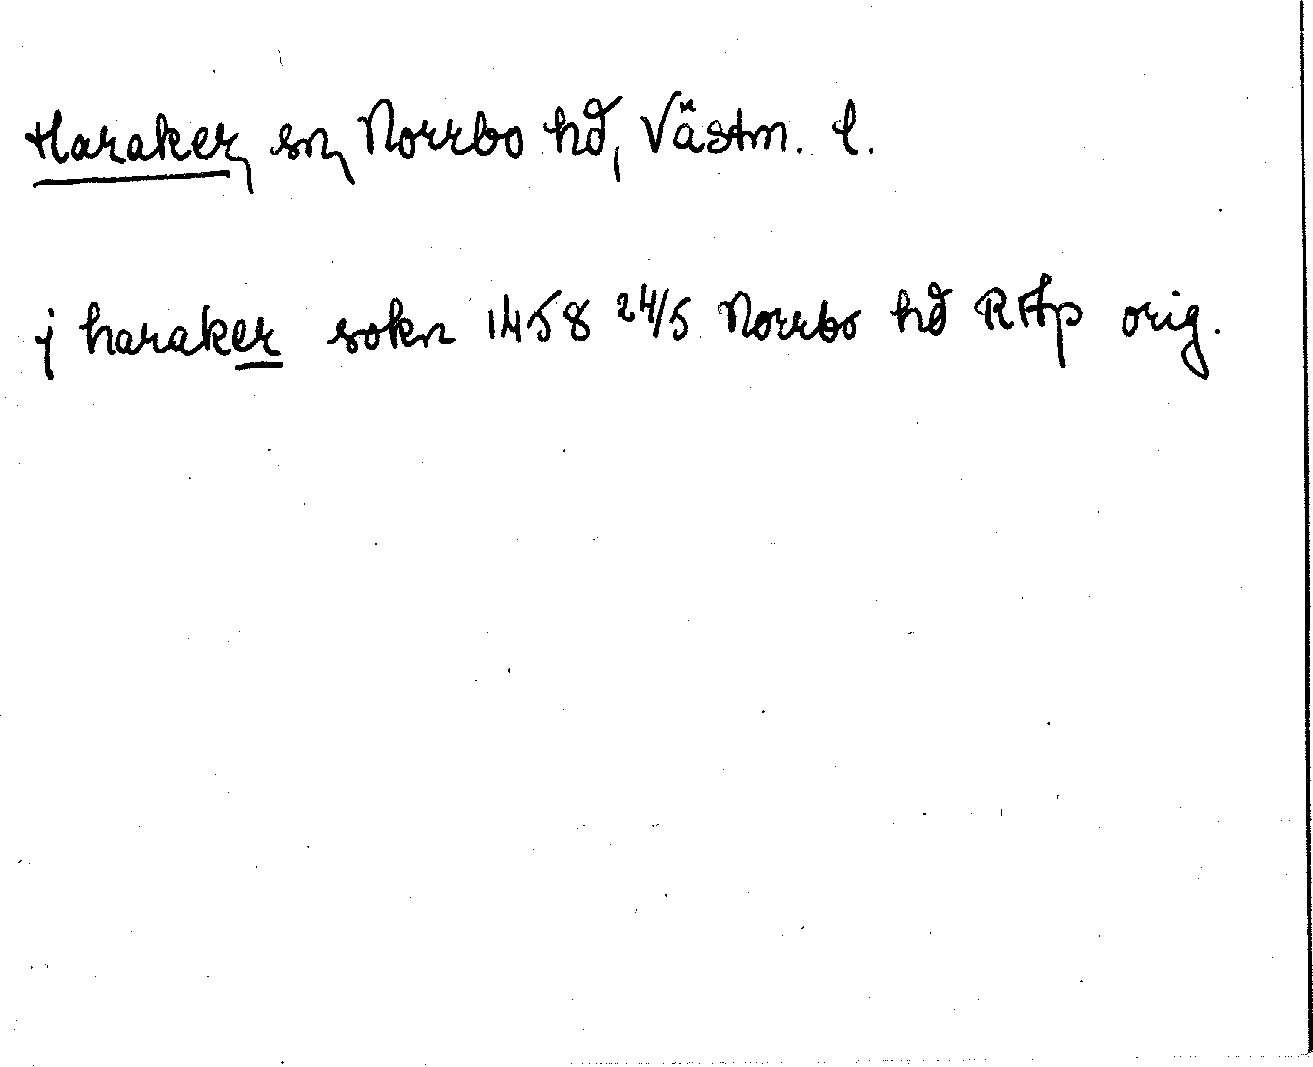 Haraker, sn, Norrbo hd, Västm. l.
j haraker sokn 1458 24/5 Norrbo hd RAp orig.